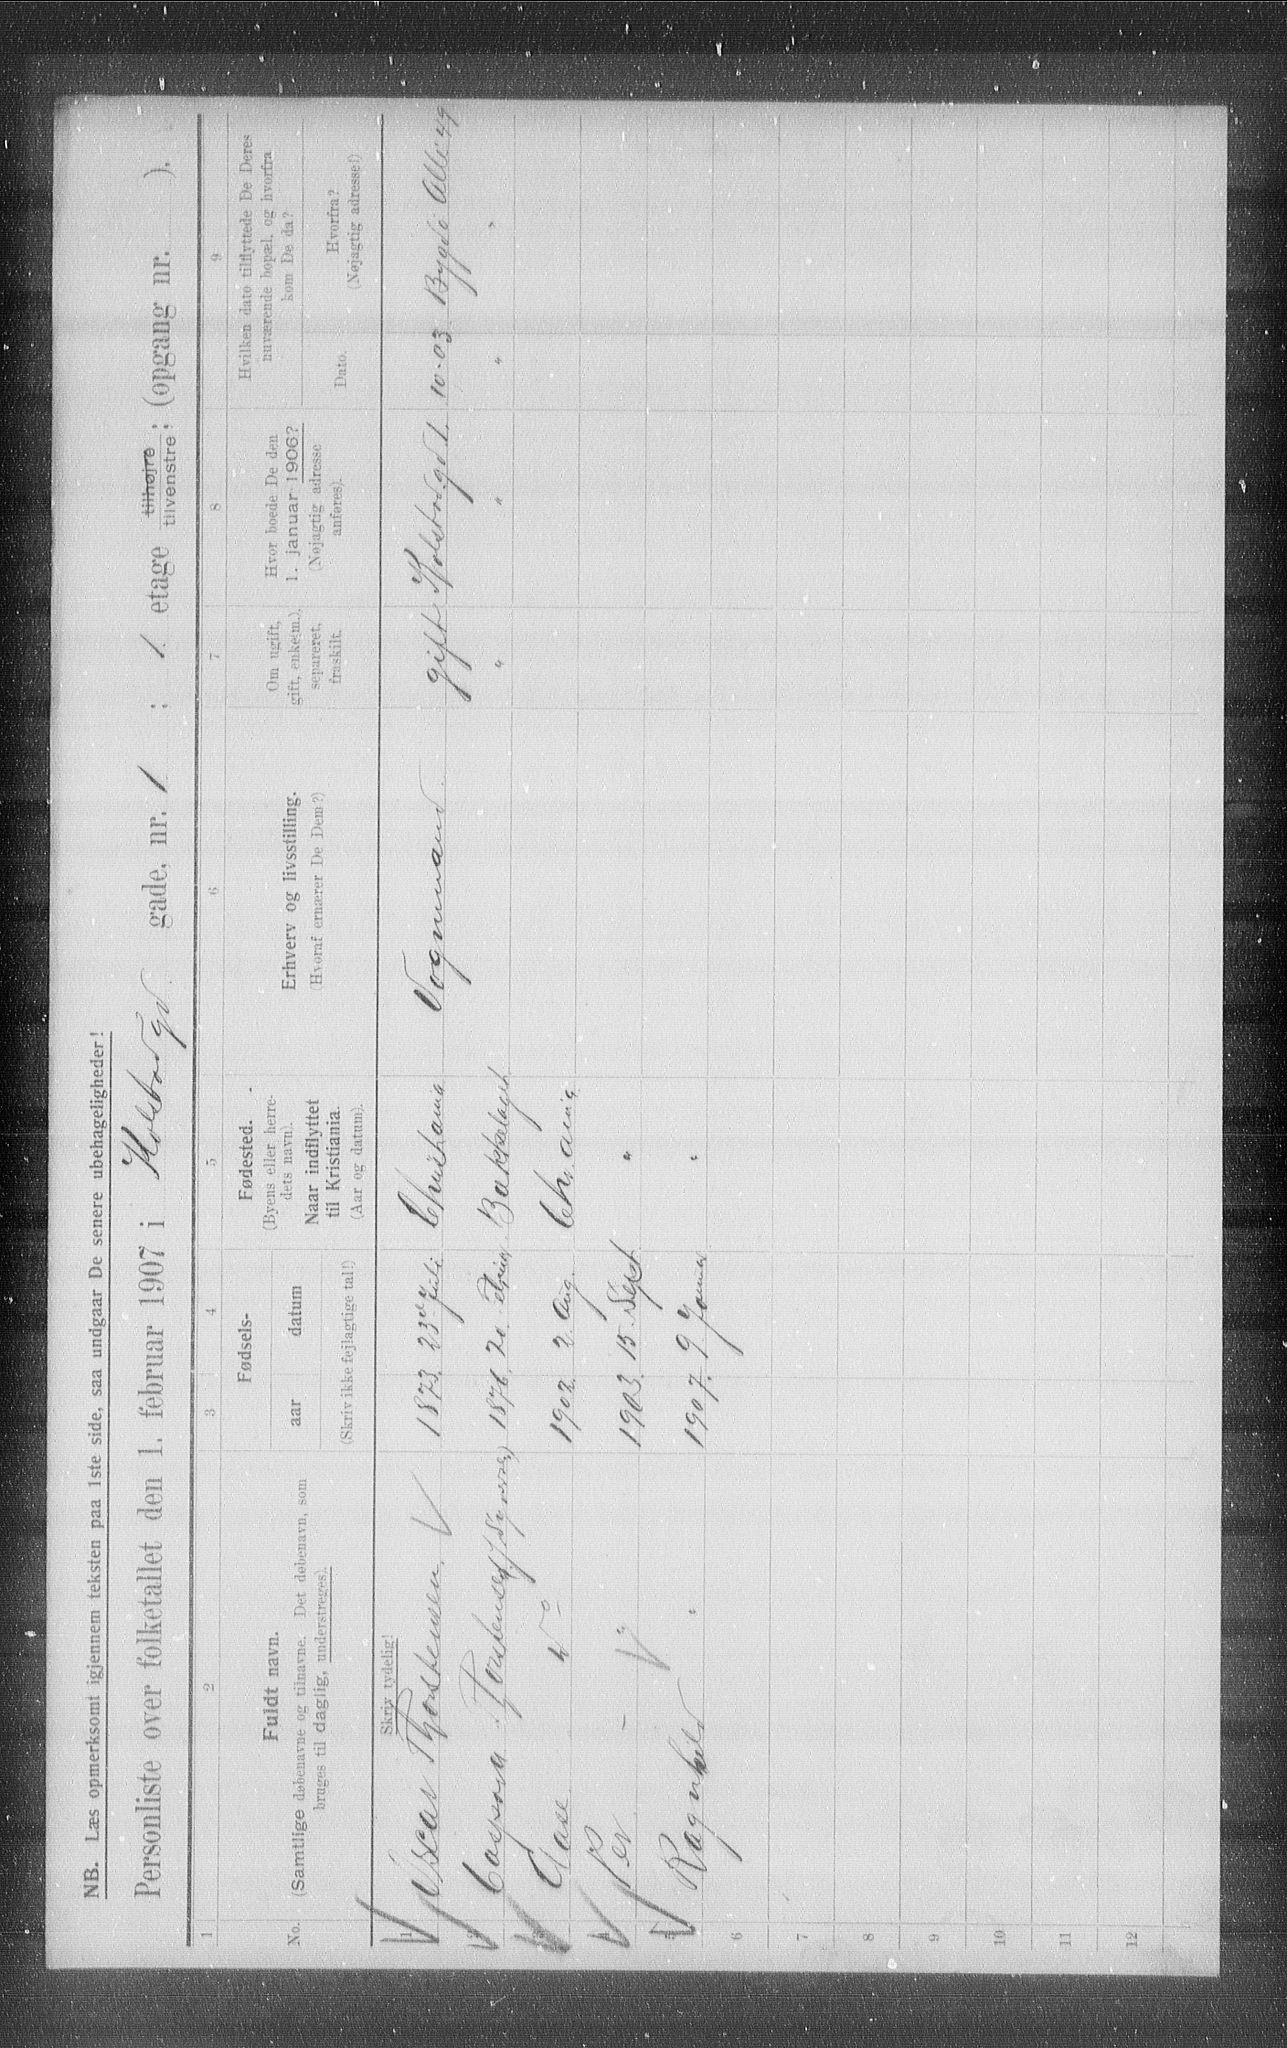 NB. Læs opmerksomt igjennem teksten paa 1ste side, saa undgaar De senere ubehageligheder!
Personliste over folketallet den 1. februar 1907 i Holsbergd. gade, nr. 1 ; 1. etage tilhøjre tilvenstre; (opgang nr. ).
1 2 3 4 5 6 7 8 9
No.
Fuldt navn.
(Samtlige døbenavne og tilnavne. Det døbenavn, som
bruges til daglig, understreges).
Fødsels-
aar datum
(Skriv ikke fejlagtige tal!)
Fødested.
(Byens eller herre-
dets navn).
Naar indflyttet
til Kristiania.
(Aar og datum).
Erhverv og livsstilling.
(Hvoraf ernærer De Dem?)
Om ugift,
gift, enke(m.),
separeret,
fraskilt.
Hvor boede De den
1. januar 1906?
(Nøjagtig adresse
anføres).
Hvilken dato tilflyttede De Deres
nuværende bopæl, og hvorfra
kom De da?
Dato.
Hvorfra?
(Nøjagtig adresse!)
Skriv tydelig!
1 Oscar Thorstensen. 1873. 23 juli Christiania Vognmand. gift 1. 10-03. Bygdø Alle 49
2 Caspara Torstensen 1876. 20. Bækkelaget " " " "
3 Aase do 1902. 2. Aug. Chr.ania
4 Per - " 1903. 15. Sept "
5 Ragnhild " 1907. 9 Januar "
6
7
8
9
10
11
12